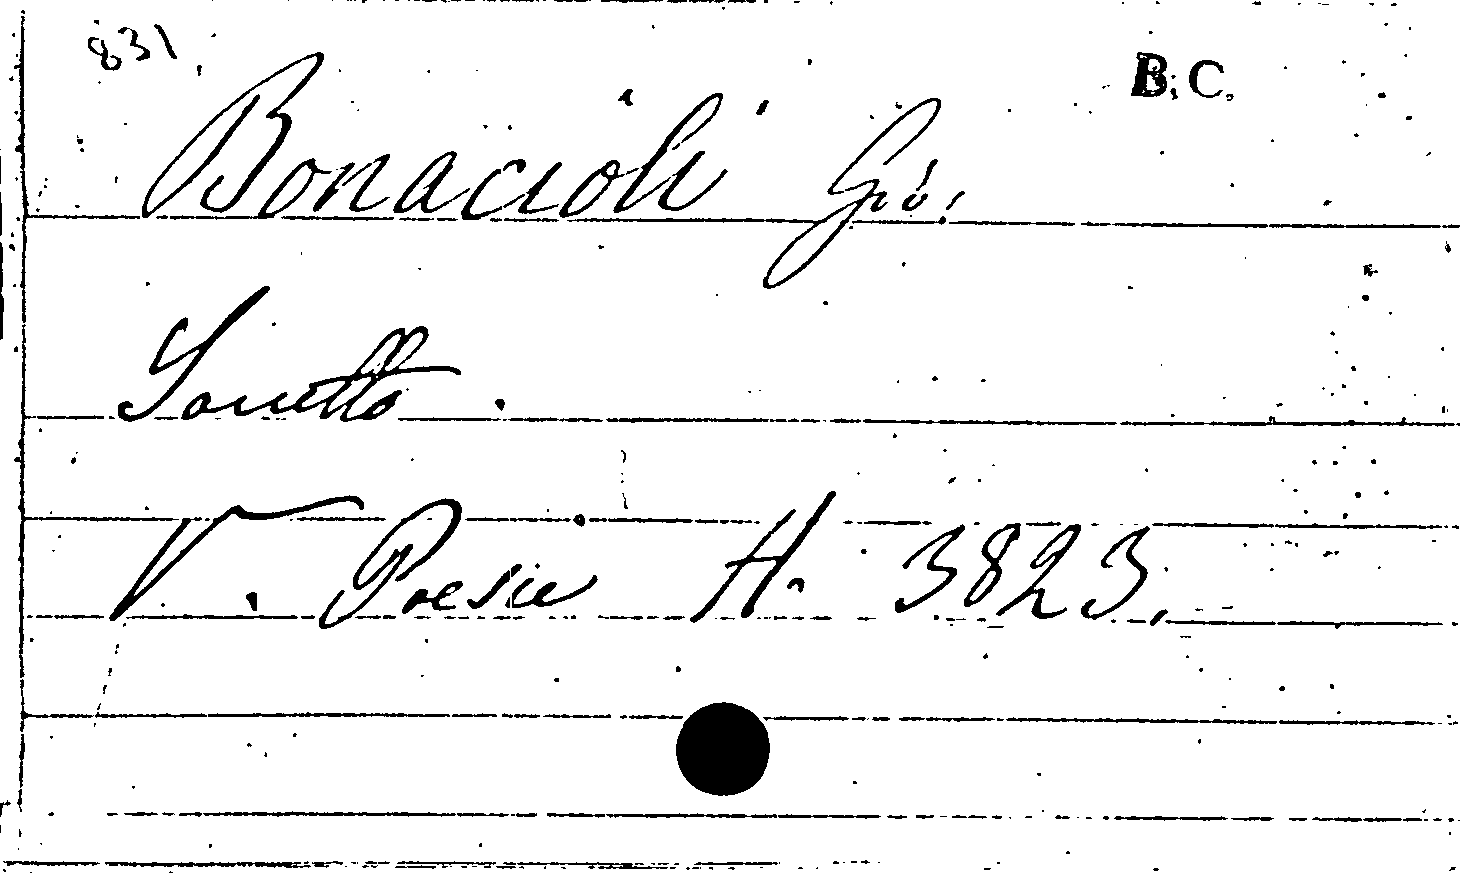 831.
B.C.
Bonacioli Gio.
Sonetto.
V. Poesie H. 3823.